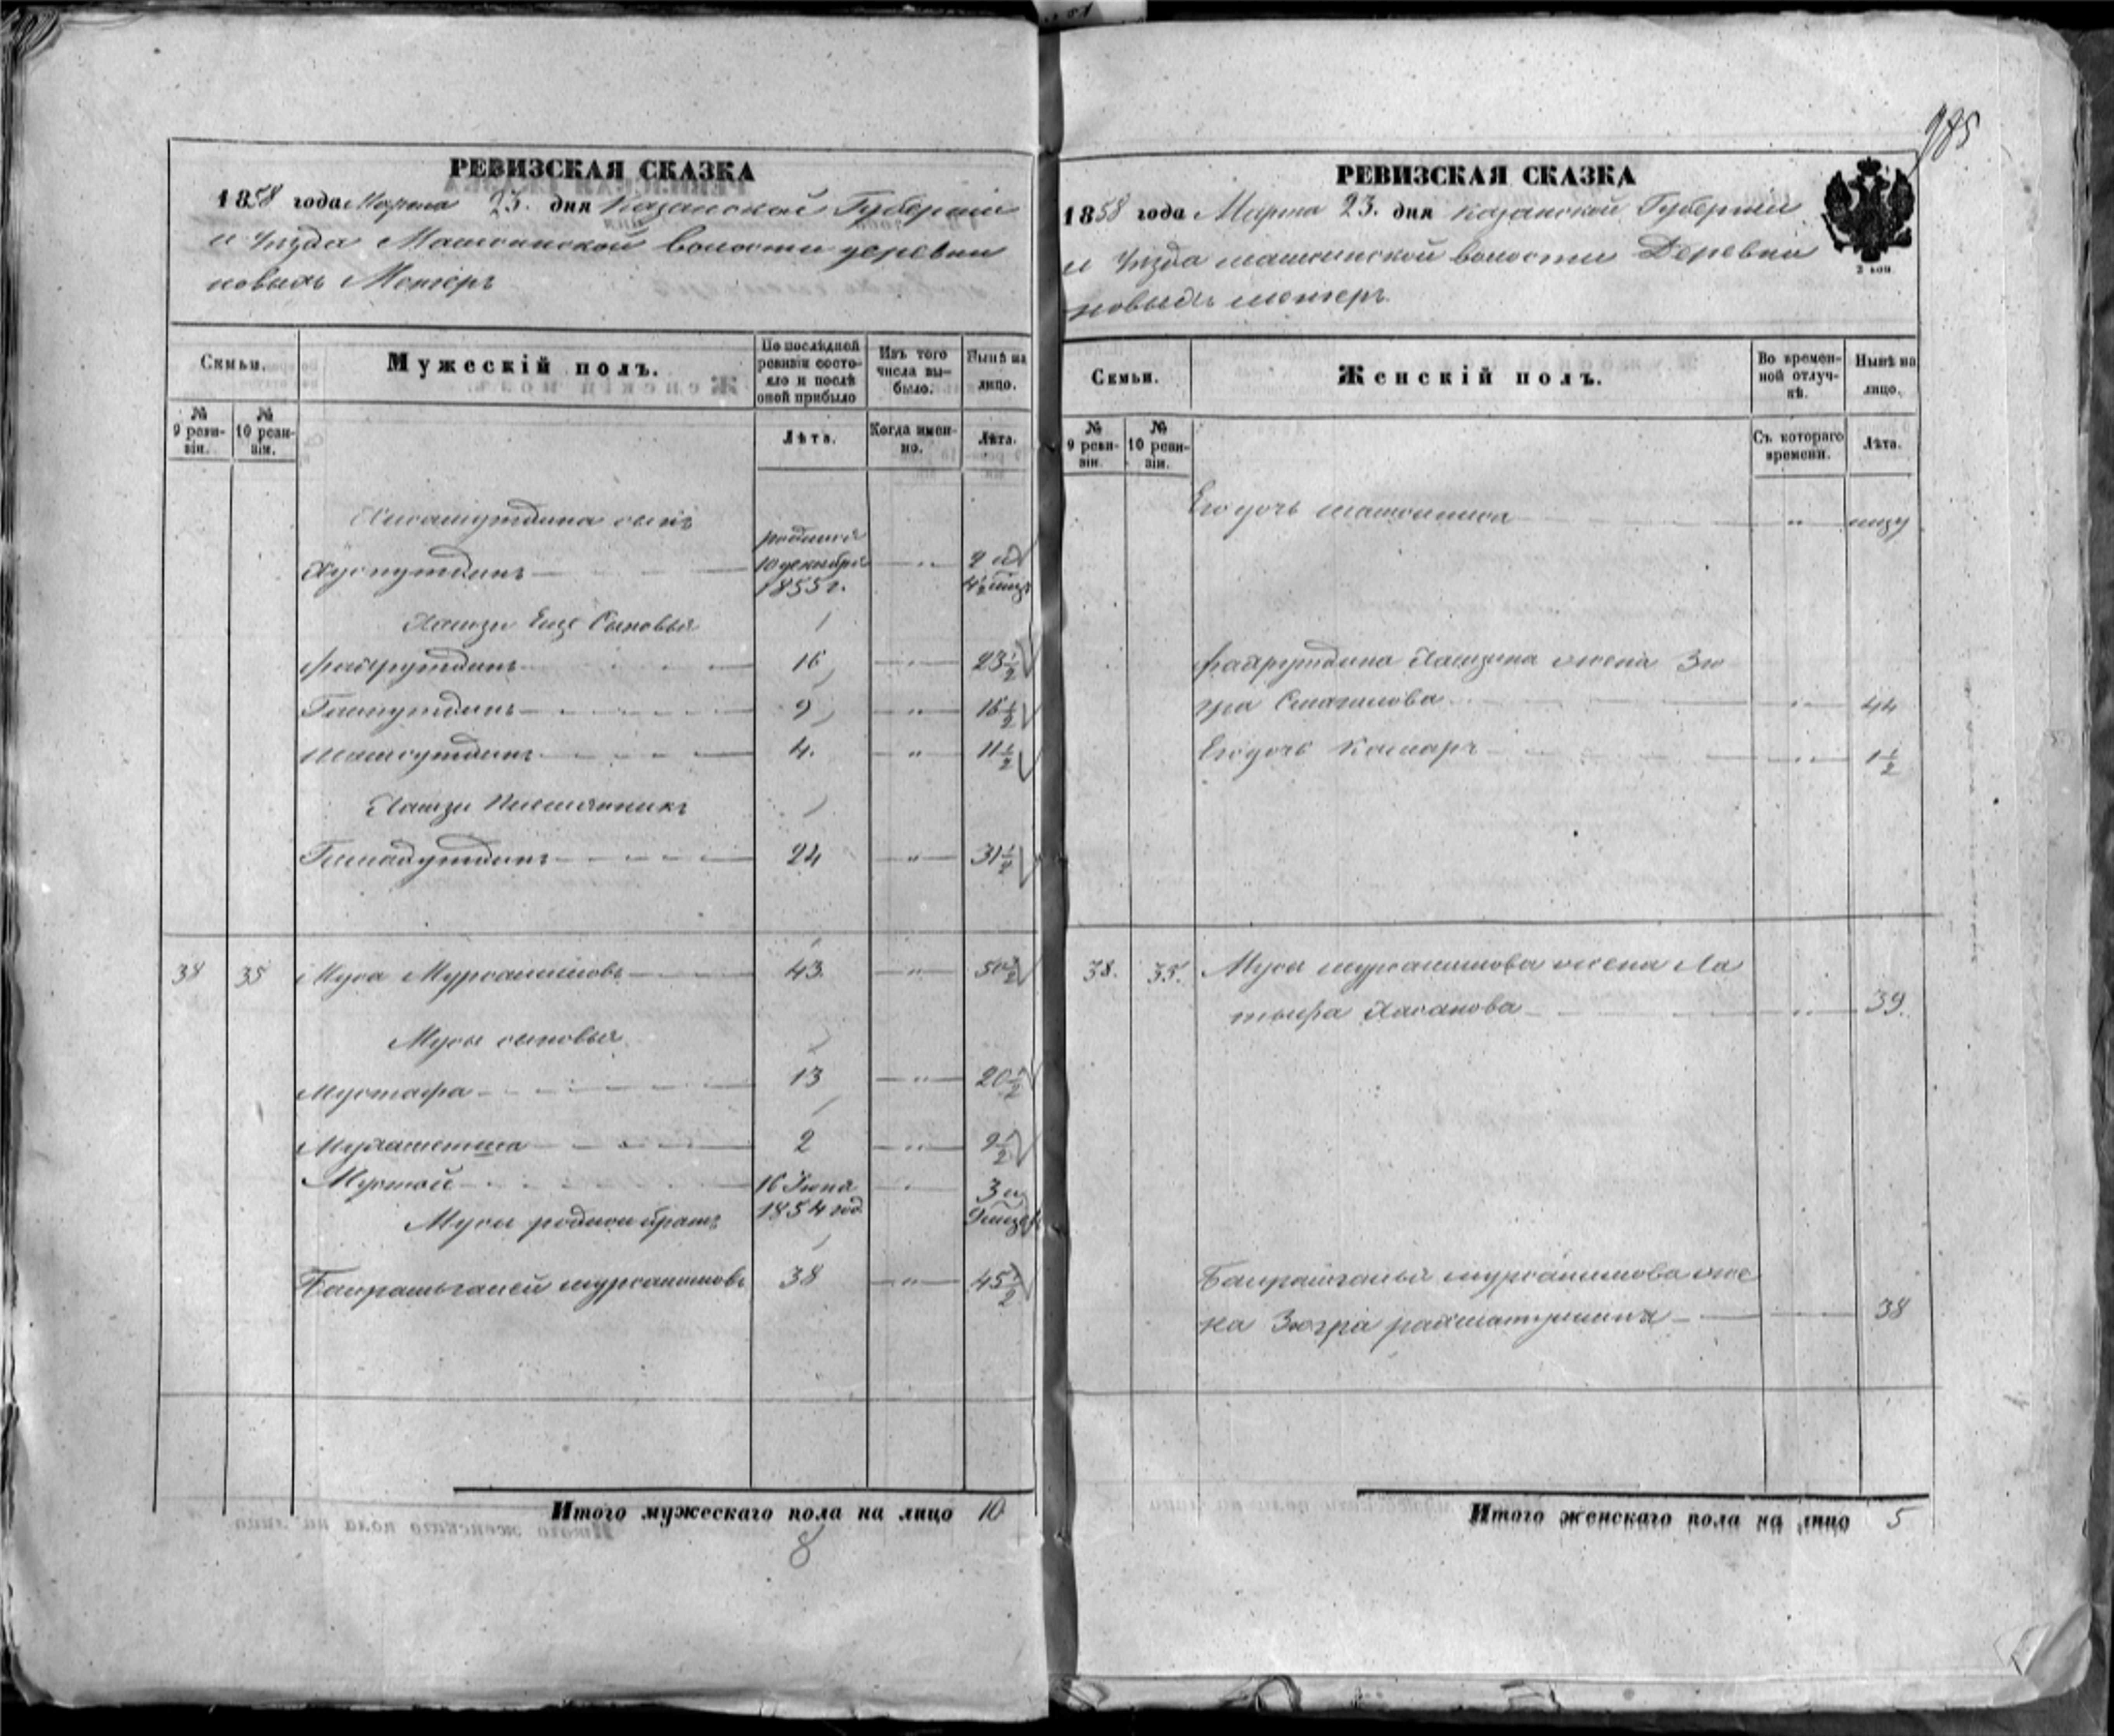 985
РЕВИЗСКАЯ СКАЗКА
1858 года Марта 23. дня Казанской Губернии
и Уѣзда Машинской волости деревни
новыхъ Менгеръ
Семьи.
Мужескій полъ.
По послѣдней ревизіи состояло и послѣ оной прибыло
Изъ того числа выбыло.
Нынѣ на лицо.
№ 9 ревизіи.
№ 10 ревизіи.
Лѣта.
Когда именно.
Лѣта.
Хисамутдина сынъ
родился
Хуснутдинъ 10 декабря " 2 и
1855 г. 4½ мѣся
Хамзи Еще Сыновья
Файрутдинъ 16 " 23½
Гаинутдинъ 9 " 16½
Шамсутдинъ 4. " 11½
Хамзи Племянникъ
Гимадутдинъ 24 " 31½
38 35 Муса Мурсалимовъ 43. " 50½
Мусы сыновья
Мустафа 13 " 20½
Мухаметша 2 " 9½
16 Июня " 3 и
Мусы родной братъ 1854 год 9 мѣся
38 " 45½
Итого мужескаго пола на лицо 10
8
РЕВИЗСКАЯ СКАЗКА
1858 года Марта 23. дня Казанской Губерніи
и Уѣзда Машинской волости Деревни
новыхъ менгеръ.
2 коп
Семьи.
Женскій полъ.
Во временной отлучкѣ.
Нынѣ на лицо.
№ 9 ревизіи.
№ 10 ревизіи.
Съ котораго времени.
Лѣта.
Его дочь "
Файрутдина Хамзина жена Зю
гра Смагилова " 44
Его дочь Камаръ " 1½
38. 35. Мусы мурсалимова жена Ла
тыфа Хасанова " 39.
мурсалимова же
на Зюгра 38
Итого женскаго пола на лицо 5